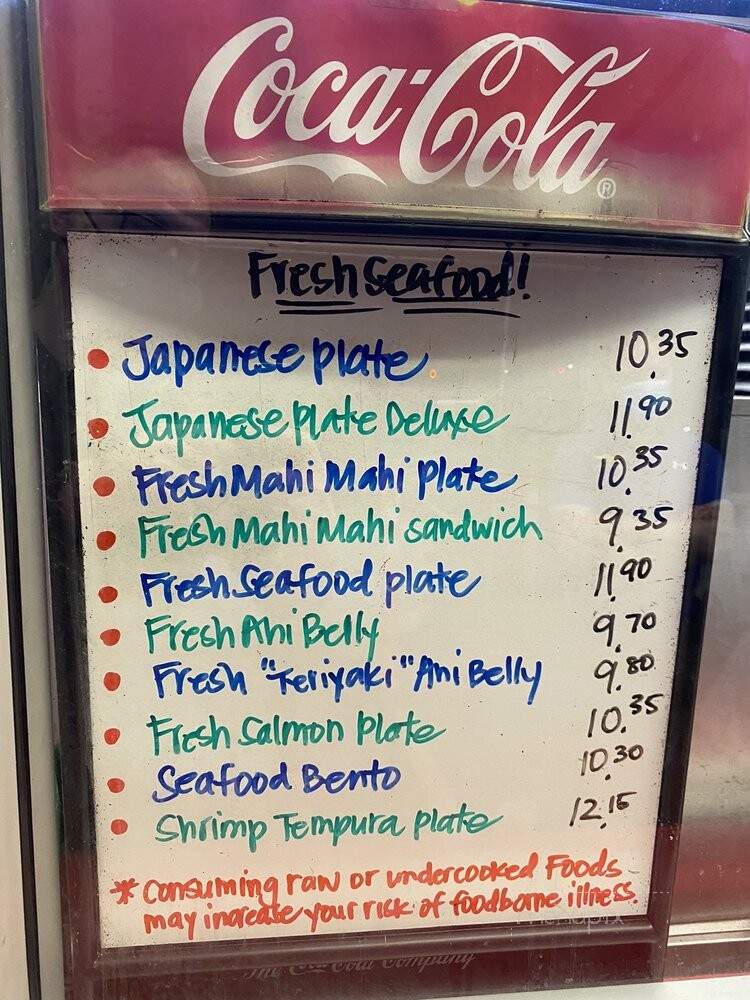 Coca-Cola®
Fresh Seafood!
• Japanese plate 10.35
• Japanese Plate Deluxe 11.90
• Fresh Mahi Mahi Plate 10.35
• Fresh Mahi Mahi sandwich 9.35
• Fresh Seafood plate 11.90
• Fresh Ahi Belly 9.70
• Fresh "Teriyaki" Ahi Belly 9.80
• Fresh Salmon Plate 10.35
• Seafood Bento 10.30
• Shrimp Tempura plate 12.15
* Consuming raw or undercooked Foods
may increase your risk of foodborne illness.
The Coca-Cola Company